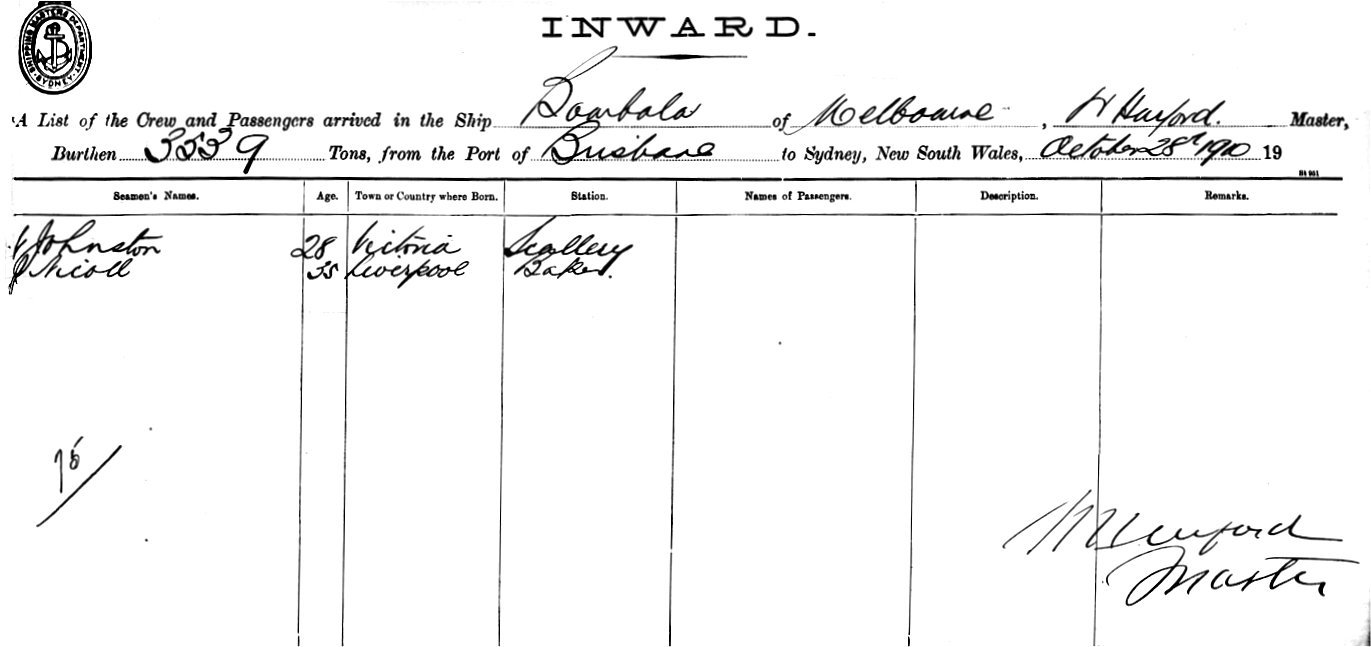 SHIPPING MASTERS DEPARTMENT SYDNEY
INWARD.
A List of the Crew and Passengers arrived in the Ship Bombala of Melbourne, Master,
Burthen 3539 Tons, from the Port of Brisbane to Sydney, New South Wales, October 28th 1910 19
Seamen's Names. Age. Town or Country where Born. Station. Names of Passengers. Description. Remarks.
Johnston 28 Victoria Scullery
J Nicoll 35 Liverpool Baker.
75
Master